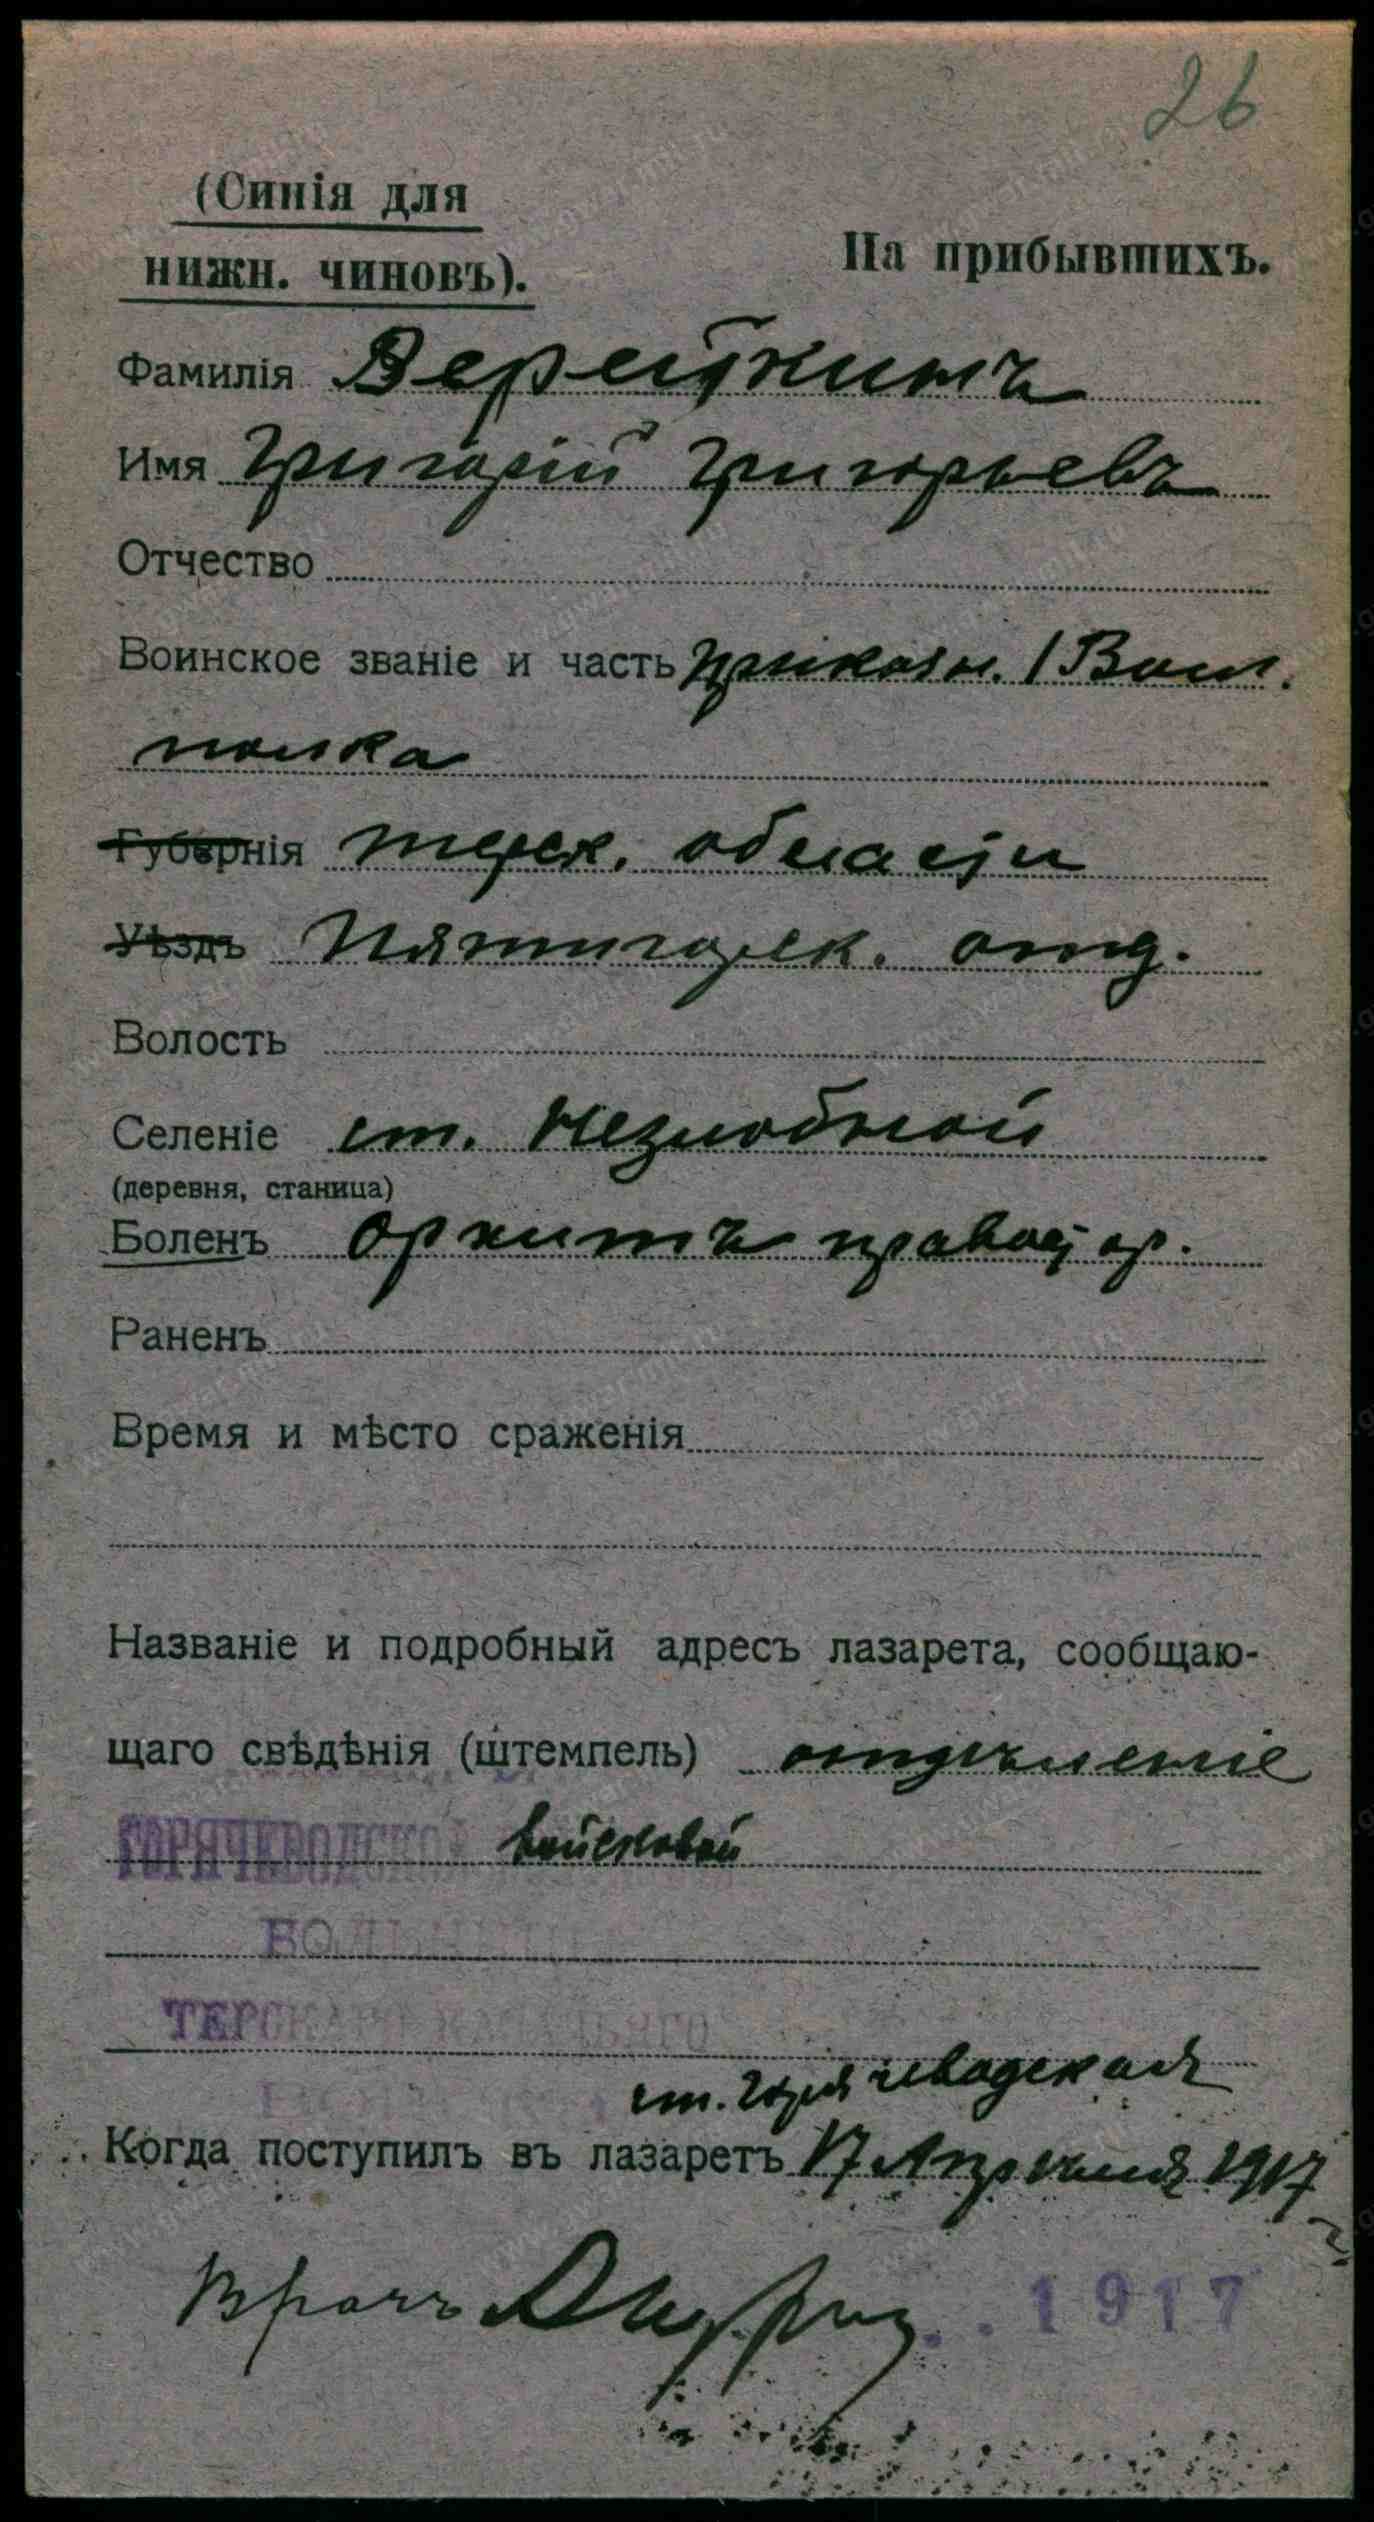 26
(Синія для
нижн. чиновъ).
На прибывшихъ.
Фамилія Вереткинъ
Имя Григорій Григорьевъ
Отчество
Воинское званіе и часть приказн. 1 Волг.
полка
Губернія терск. области
Уѣздъ Пятигорск. отд.
Волость
Селеніе ст. Незлобной
(деревня, станица)
Боленъ Орхитъ правост ор.
Раненъ
Время и мѣсто сраженія
Названіе и подробный адресъ лазарета, сообщаю-
щаго свѣдѣнія (штемпель) отдѣленіе
ГОРЯЧЕВОДСКОЙ войсковой
БОЛЬНИЦЫ
ТЕРСКАГО КАЗАЧЬЯГО
ст. Горячеводская
Когда поступилъ въ лазаретъ 17 Апрѣля 1917
г.
Врачъ
1917